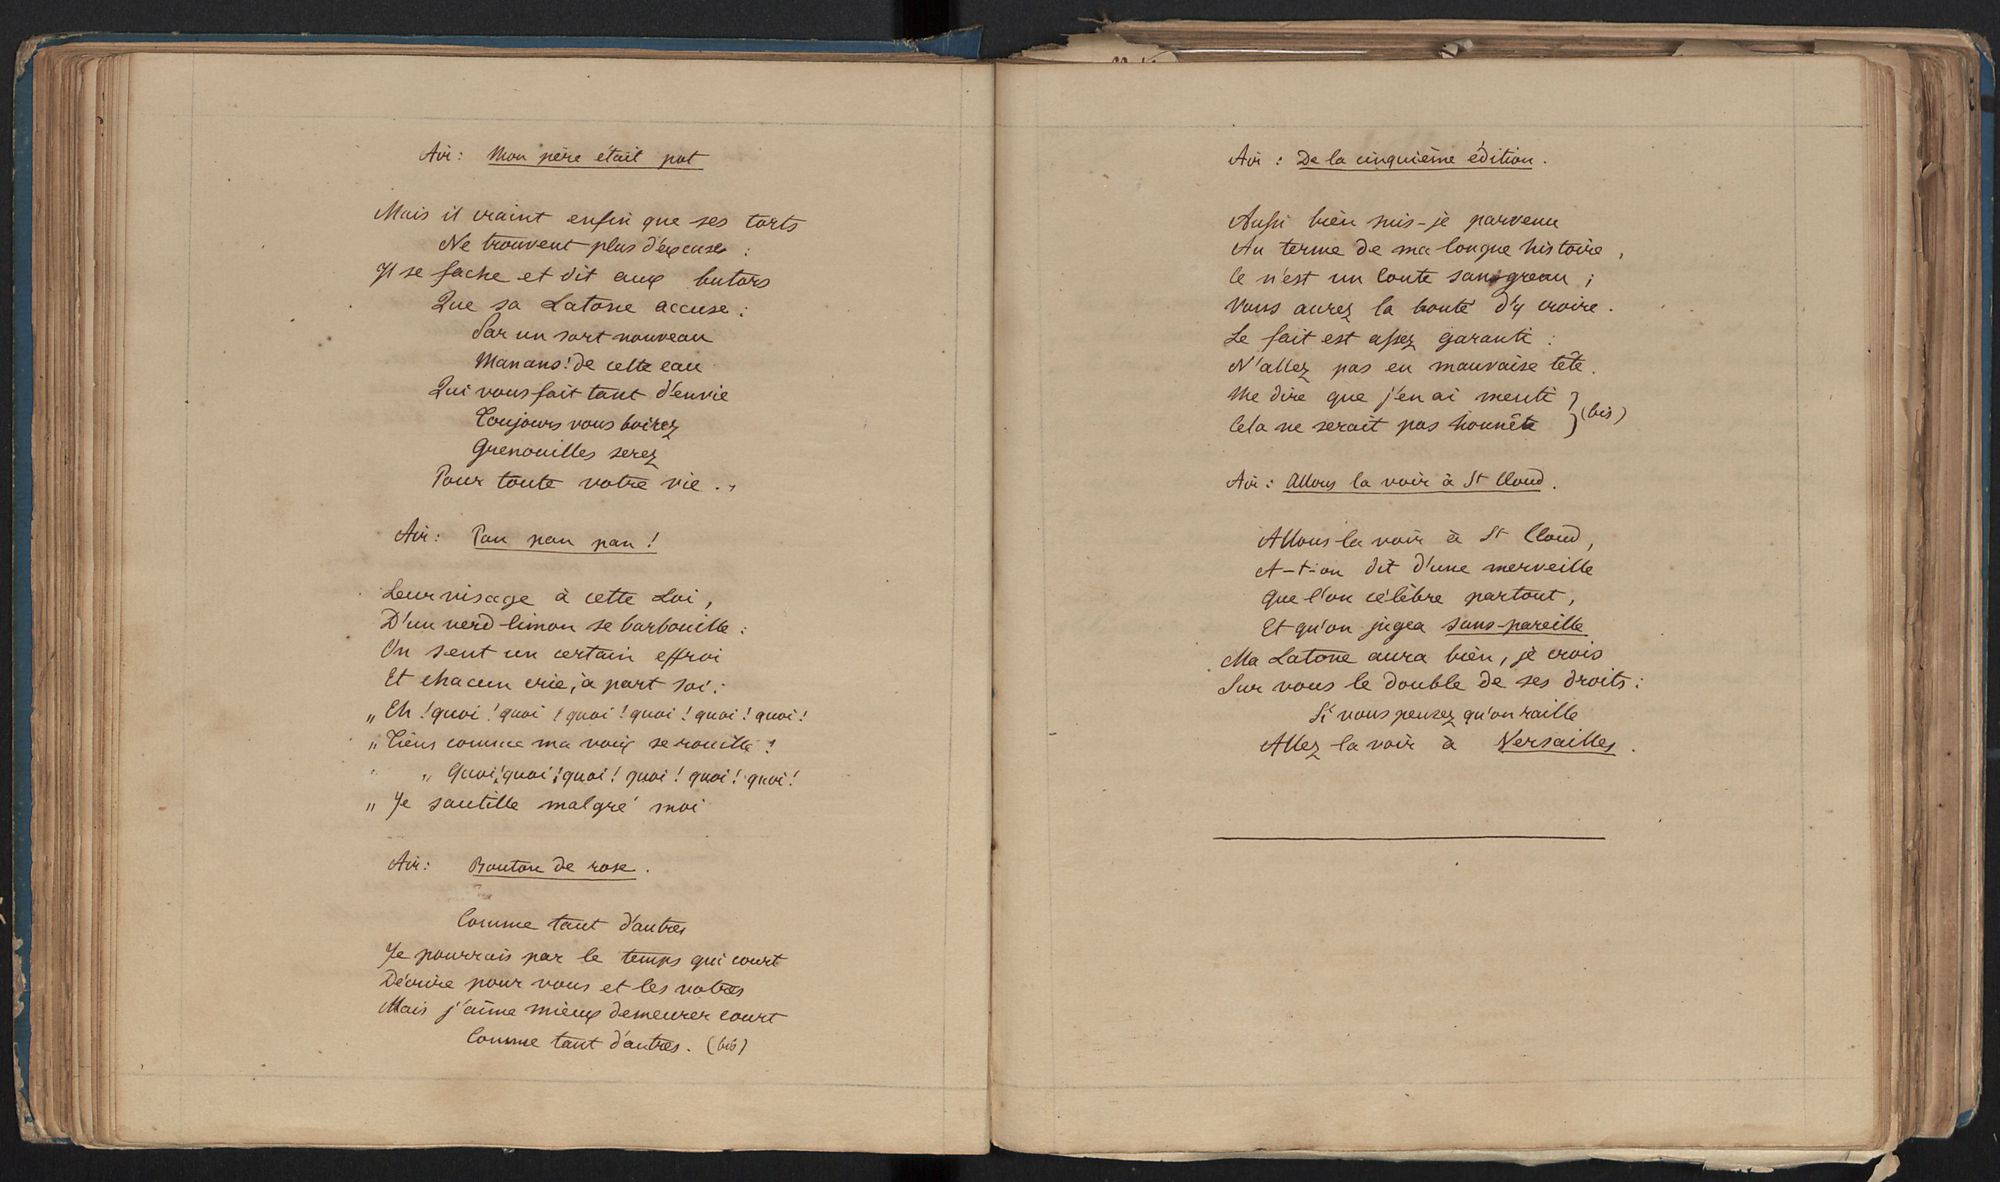 Air: Mon père était pot
Mais il craint enfin que ses torts
Ne trouvent plus d'excuses :
Il se fache et dit aux butors
Que sa Latone accuse :
Par un sort nouveau
Manans ! de cette eau
Qui vous fait tant d'envie
Toujours vous boirez
Grenouilles serez
Pour toute votre vie .
Air: Pan pan pan !
Leur visage à cette Loi,
D'un verd limon se barbouille :
On sent un certain effroi
Et chacun crie, à part soi :
" Eh ! quoi ! quoi ! quoi ! quoi ! quoi ! quoi !
" Tiens comme ma voix se rouille !
" Quoi ! quoi ! quoi ! quoi ! quoi ! quoi !
" Je sautille malgré moi
Air: Bouton de rose.
Comme tant d'autres
Je pourrais par le temps qui court
Décrire pour vous et les votres
Mais j'aime mieux demeurer court
Comme tant d'autres. (bis)
Air : De la cinquième édition.
Aussi bien suis-je parvenu
Au terme de ma longue histoire,
Ce n'est un Conte saugrenu ;
Vous aurez la bonté d'y croire.
Le fait est assez garanti :
N'allez pas en mauvaise tête.
Me dire que j'en ai menti
Cela ne serait pas honnête } (bis)
Air : Allons la voir à St Cloud.
Allons la voir à St Cloud,
A-t-on dit d'une merveille
Que l'on célèbre partout,
Et qu'on jugea sans-pareille
Ma Latone aura bien, je crois
Sur vous le double de ses droits :
Si vous pensez qu'on raille
Allez la voir à Versailles.